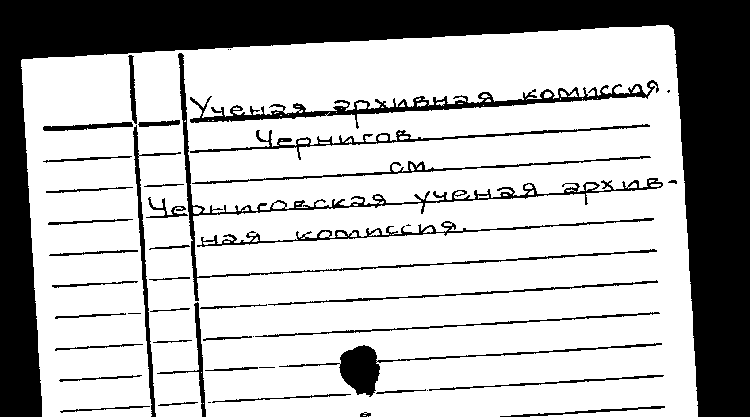 Ученая архивная комиссия.
Чернигов.
см.
Черниговская ученая архив-
ная комиссия.